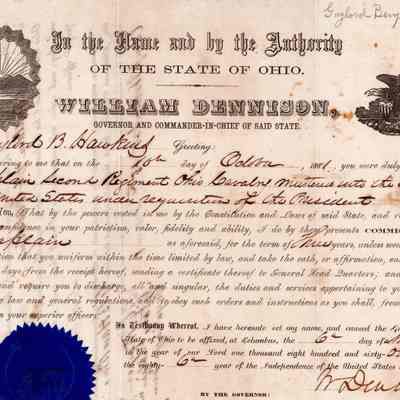 Gaylord
In the Name and by the Authority
OF THE STATE OF OHIO.
WILLIAM DENNISON,
GOVERNOR AND COMMANDER-IN-CHIEF OF SAID STATE.
B. Hawkins Greeting:
ring to me that on the day of 1861, you were duly
plain Second Regiment Ohio Cavalry mustered into the
United States under requisition of the President
that by the powers vested in me by the Constitution and Laws of said State, and
confidence in your patriotism, valor, fidelity and ability, I do by these presents COMMI
Chaplain as aforesaid, for the term of three years, unless
tion that you uniform within the time limited by law, and take the oath, or affirmation, and
days from the receipt hereof, sending a certificate thereof to General Head Quarters; and
and require you to discharge, all and singular, the duties and services appertaining to y
law and general regulations, and to obey such orders and instructions as you shall, from
your superior officers.
In Testimony Whereof, I have hereunto set my name, and caused the G
State of Ohio to be affixed, at Columbus, the 6th day of
in the year of our Lord one thousand eight hundred and sixty-
the eighty-6th year of the Independence of the United States
BY THE GOVERNOR:
W. Denn